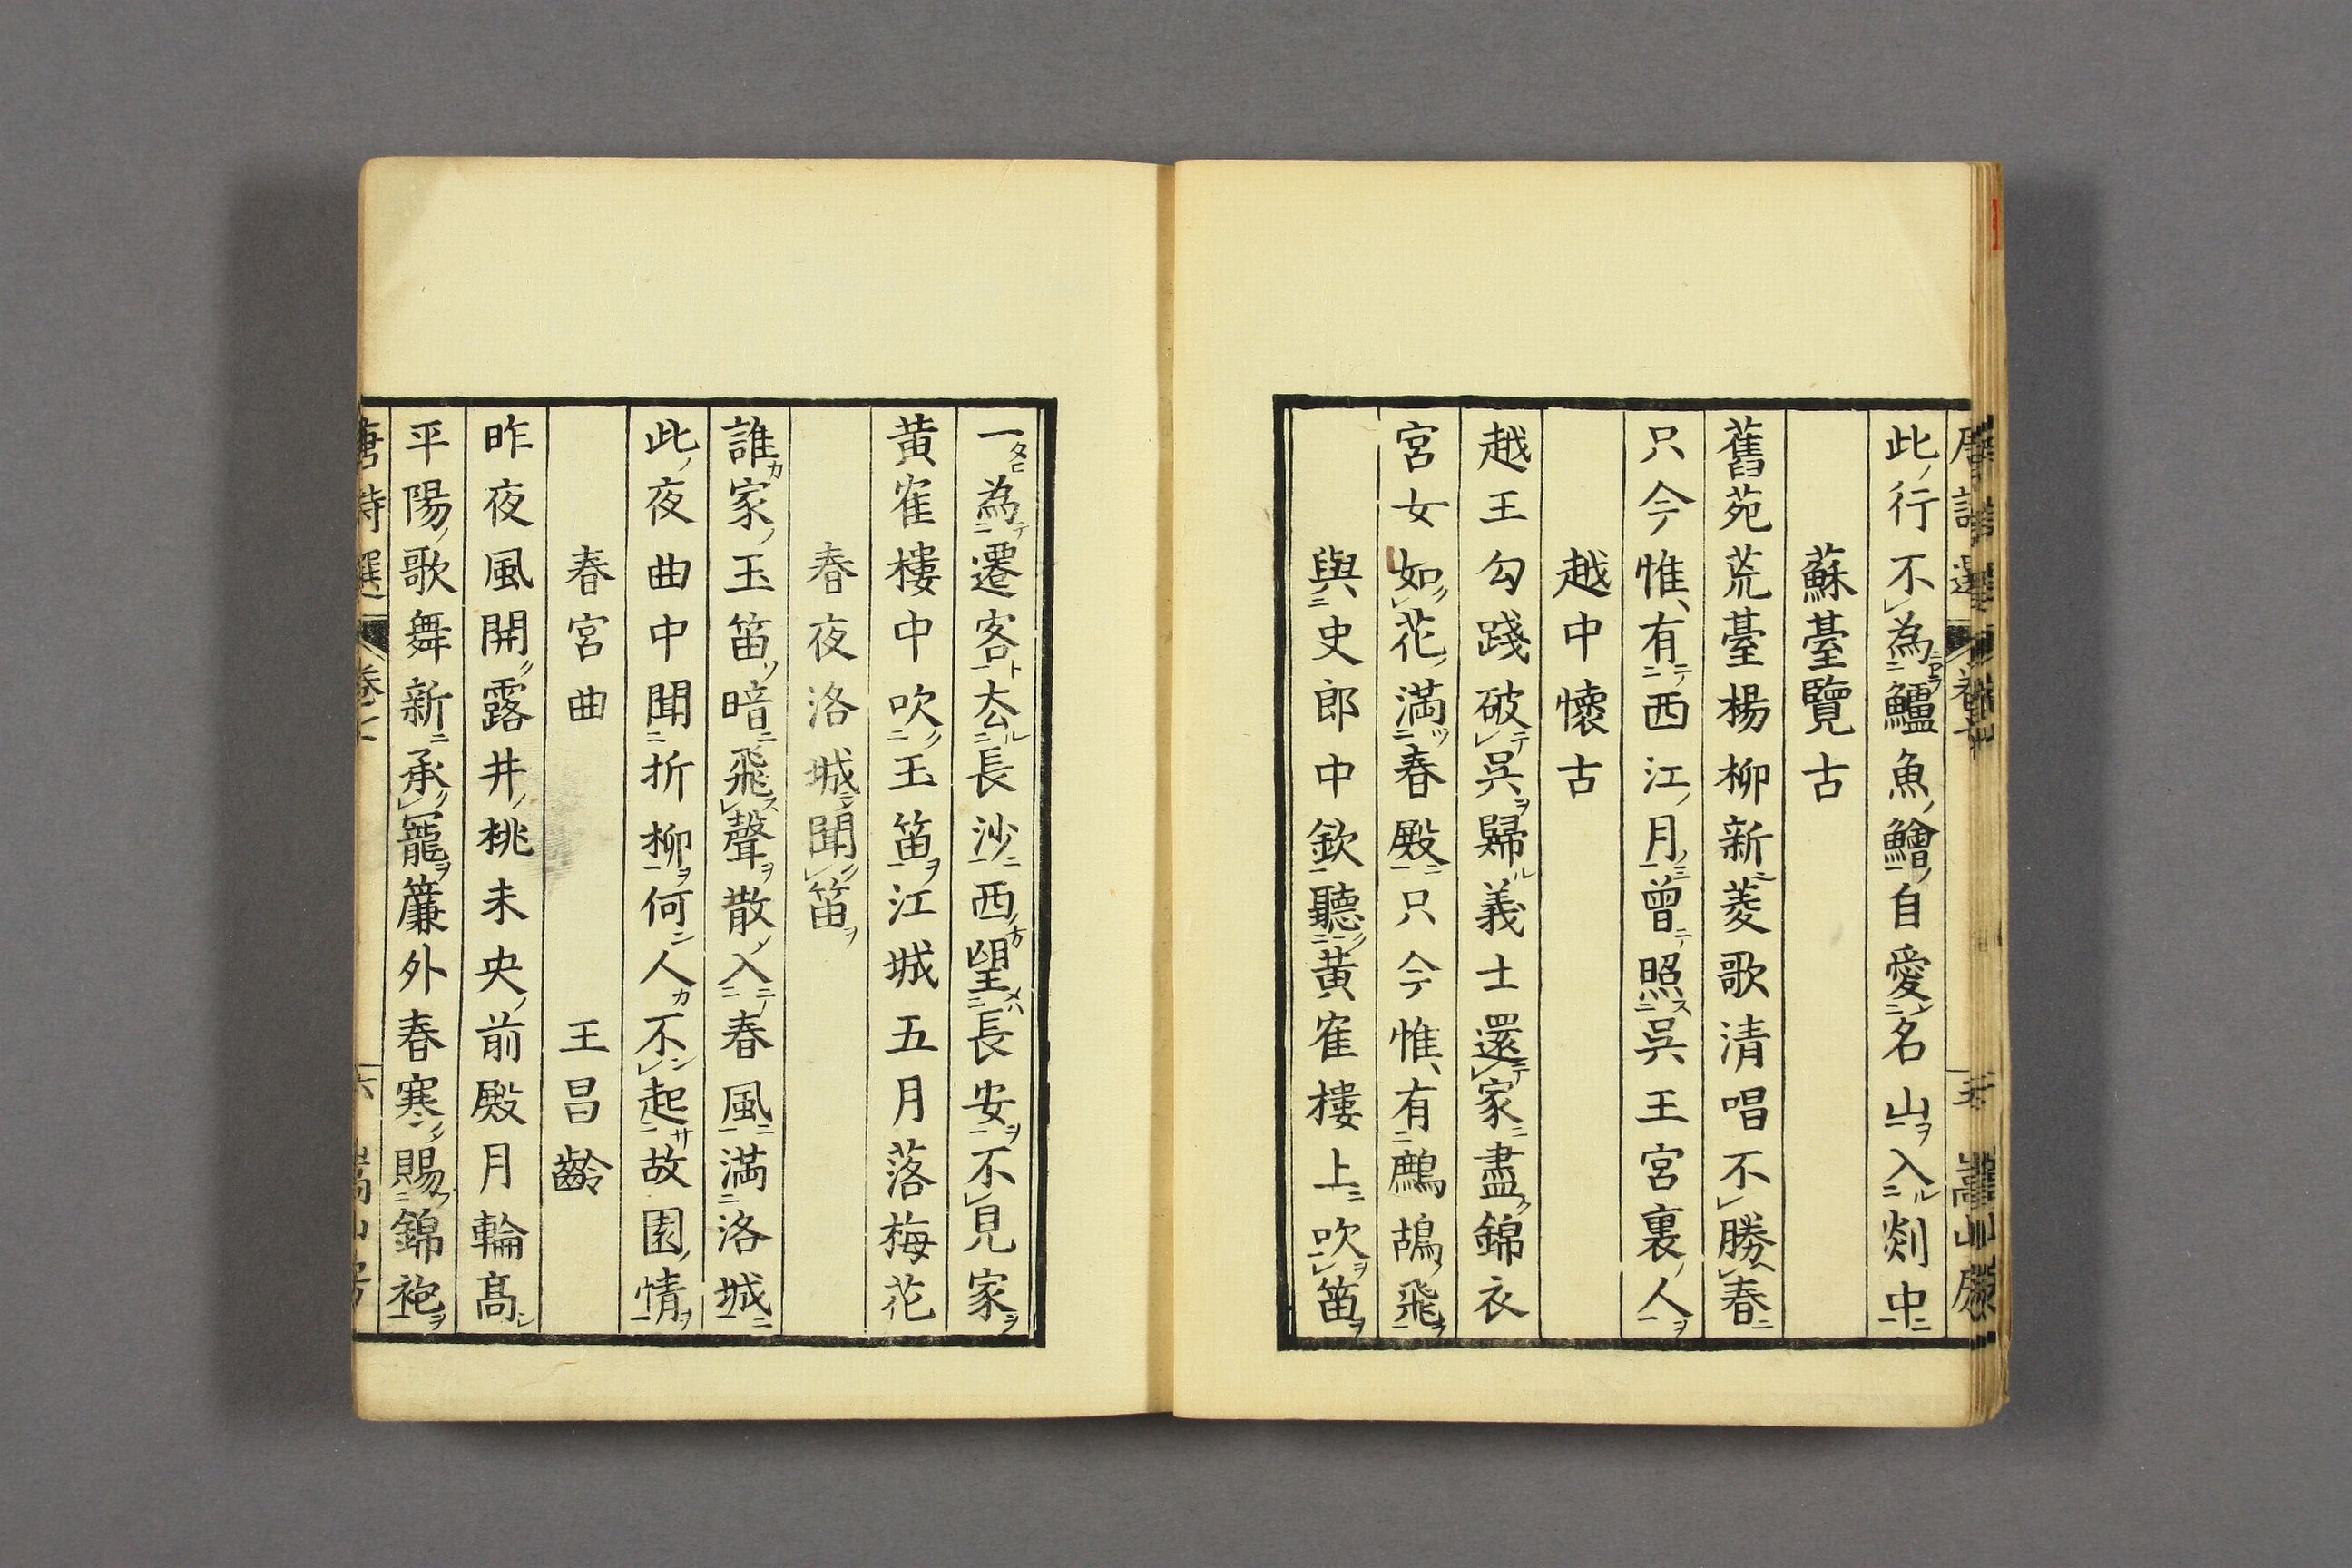 此行不為鱸魚鱠自愛名山入剡中
蘇臺覽古
舊苑荒臺楊柳新菱歌清唱不勝春
只今惟有西江月曾照吳王宮裏人
越中懷古
越王勾踐破吳歸義士還家盡錦衣
宮女如花滿春殿只今惟有鷓鴣飛
與史郎中欽聽黃雀樓上吹笛
一為遷客去長沙西望長安不見家
黃雀樓中吹玉笛江城五月落梅花
春夜洛城聞笛
誰家玉笛暗飛聲散入春風滿洛城
此夜曲中聞折柳何人不起故園情
春宮曲 王昌齡
昨夜風開露井桃未央前殿月輪高
平陽歌舞新承寵簾外春寒賜錦袍
唐詩選 卷七 六 嵩山房